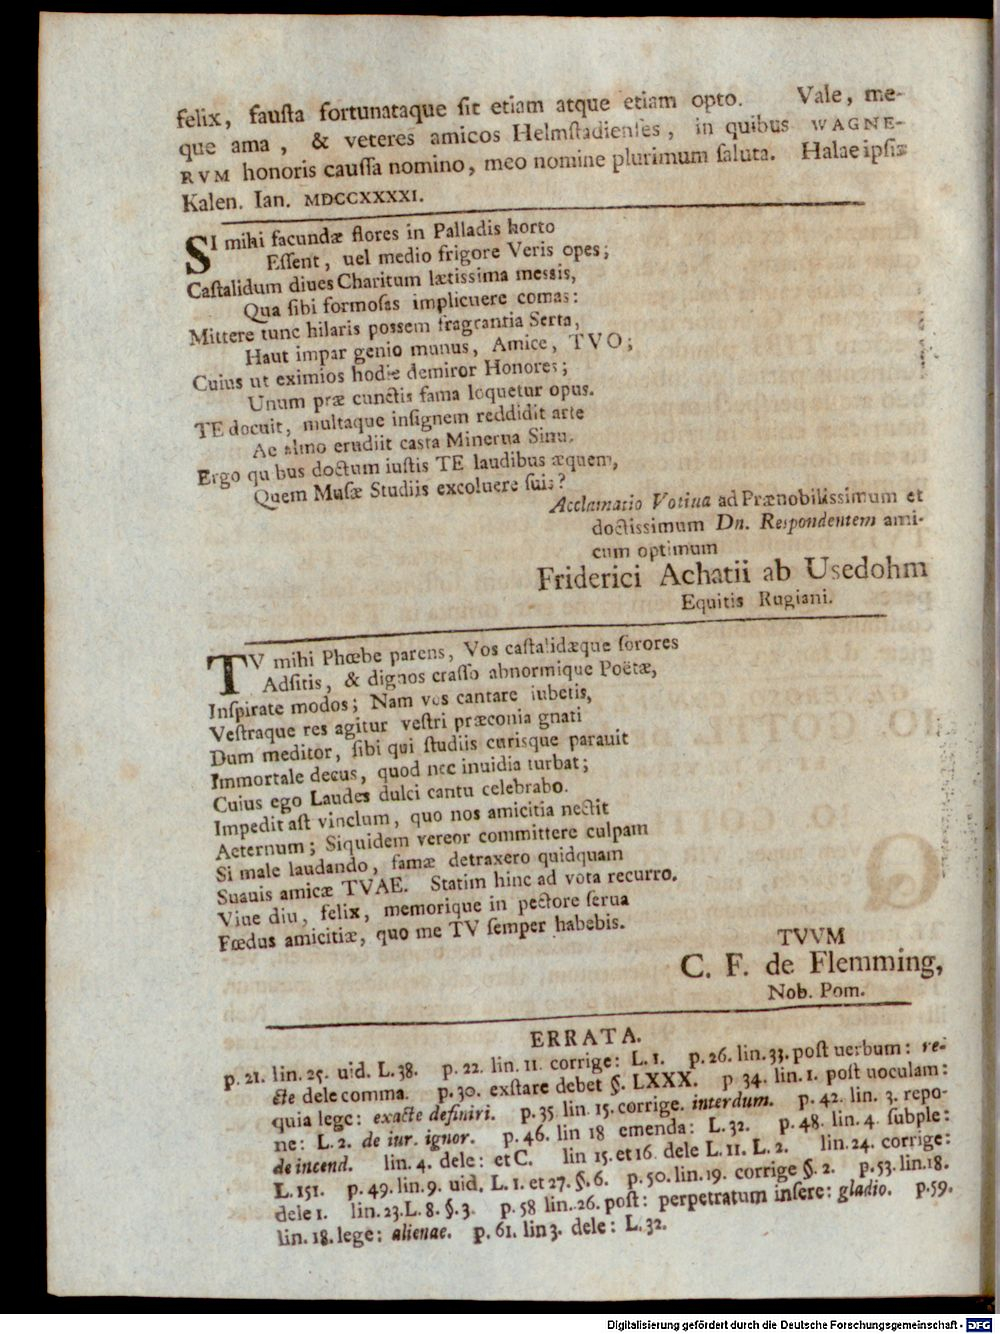 felix, fausta fortunataque sit etiam atque etiam opto. Vale, me-
que ama, & veteres amicos Helmstadienses, in quibus WAGNE-
RVM honoris caussa nomino, meo nomine plurimum saluta. Halae ipsis
Kalen. Ian. MDCCXXXXI.
SI mihi facundæ flores in Palladis horto
Essent, uel medio frigore Veris opes;
Castalidum diues Charitum lætissima messis,
Qua sibi formosas implicuere comas:
Mittere tunc hilaris possem fragrantia Serta,
Haut impar genio munus, Amice, TVO;
Cuius ut eximios hodie demiror Honores;
Unum præ cunctis fama loquetur opus.
TE docuit, multaque insignem reddidit arte
Ac almo erudiit casta Minerua Sinu.
Ergo qu bus doctum iustis TE laudibus æquem,
Quem Musæ Studiis excoluere suis?
Acclamatio Votiua ad Prænobilissimum et
doctissimum Dn. Respondentem ami-
cum optimum
Friderici Achatii ab Usedohm
Equitis Rugiani.
TV mihi Phœbe parens, Vos castalidæque sorores
Adsitis, & dignos crasso abnormique Poëtæ,
Inspirate modos; Nam vos cantare iubetis,
Vestraque res agitur vestri præconia gnati
Dum meditor, sibi qui studiis curisque parauit
Immortale decus, quod nec inuidia turbat;
Cuius ego Laudes dulci cantu celebrabo.
Impedit ast vinclum, quo nos amicitia nectit
Aeternum; Siquidem vereor committere culpam
Si male laudando, famæ detraxero quidquam
Suauis amicæ TVAE. Statim hinc ad vota recurro.
Viue diu, felix, memorique in pectore serua
Fœdus amicitiæ, quo me TV semper habebis.
TVVM
C. F. de Flemming,
Nob. Pom.
ERRATA.
p. 21. lin. 25. uid. L. 38. p. 22. lin. 11. corrige: L. 1. p. 26. lin. 33. post uerbum: re-
cte dele comma. p. 30. exstare debet §. LXXX. p 34. lin. 1. post uoculam:
quia lege: exacte definiri. p. 35 lin. 15. corrige. interdum. p. 42. lin. 3. repo-
ne: L. 2. de iur. ignor. p. 46. lin 18 emenda: L. 32. p. 48. lin. 4. subple:
de incend. lin. 4. dele: et C. lin 15. et 16. dele L. 11. L. 2. lin. 24. corrige:
L. 151. p. 49. lin. 9. uid. L. 1. et 27. §. 6. p. 50. lin. 19. corrige §. 2. p. 53. lin. 18.
dele 1. lin. 23. L. 8. §. 3. p. 58 lin. 26. post: perpetratum insere: gladio. p. 59.
lin. 18. lege: alienae. p. 61. lin 3. dele: L. 32.
Digitalisierung gefördert durch die Deutsche Forschungsgemeinschaft - DFG